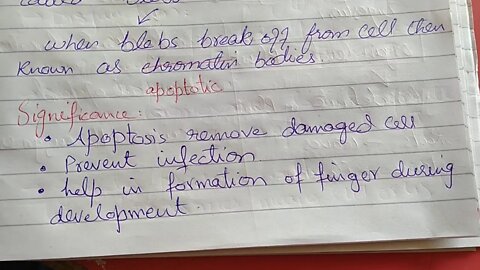 when blebs break off from cell then
known as chromatin bodies.
apoptotic
Significance:
• Apoptosis remove damaged cell
• Prevent infection
• help in formation of finger during
development.